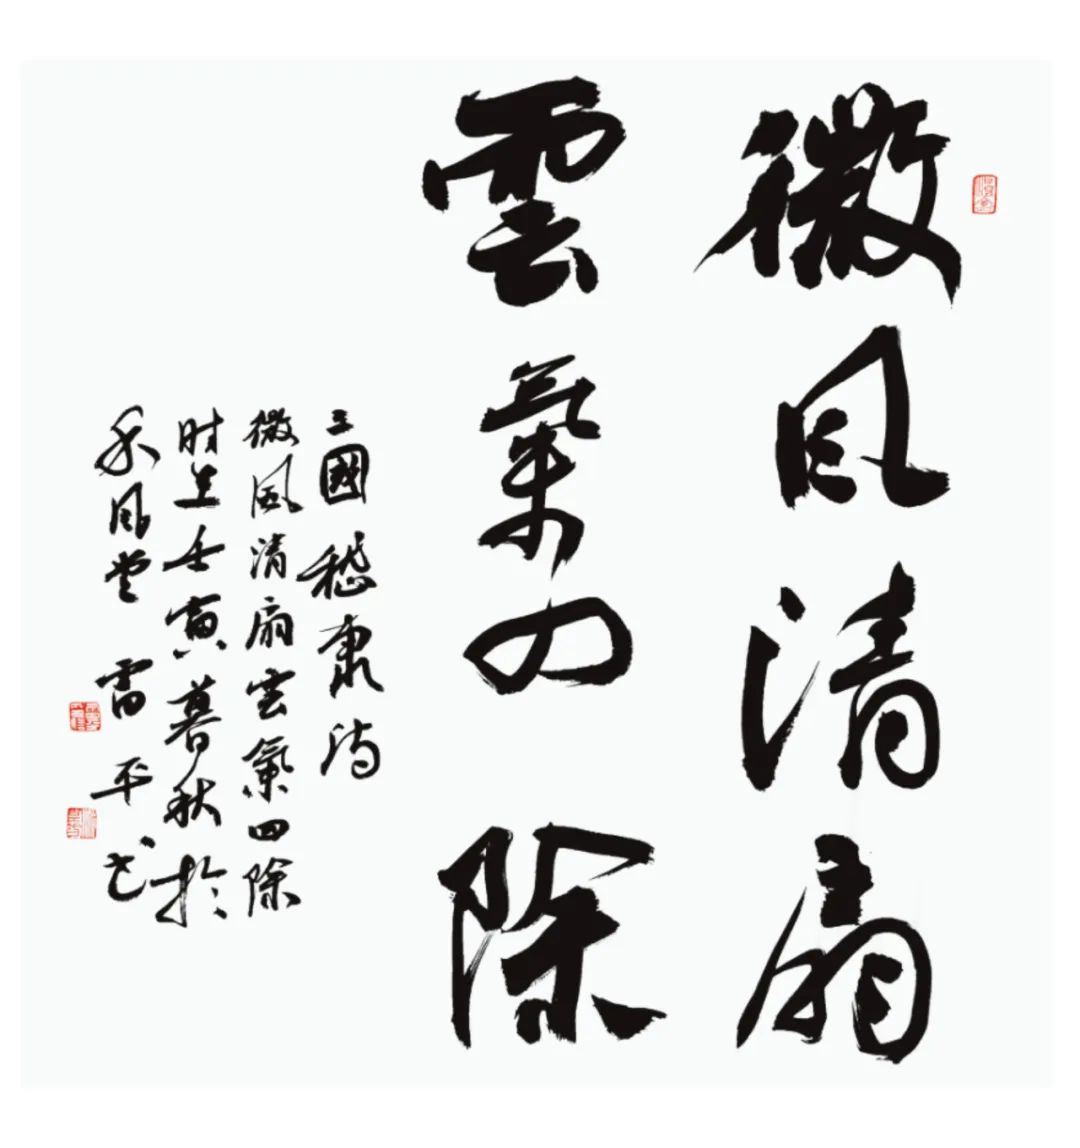 微風清扇
雲氣四除
三國嵇康詩
微風清扇雲氣四除
时在壬寅暮秋於
禾風堂雷平书